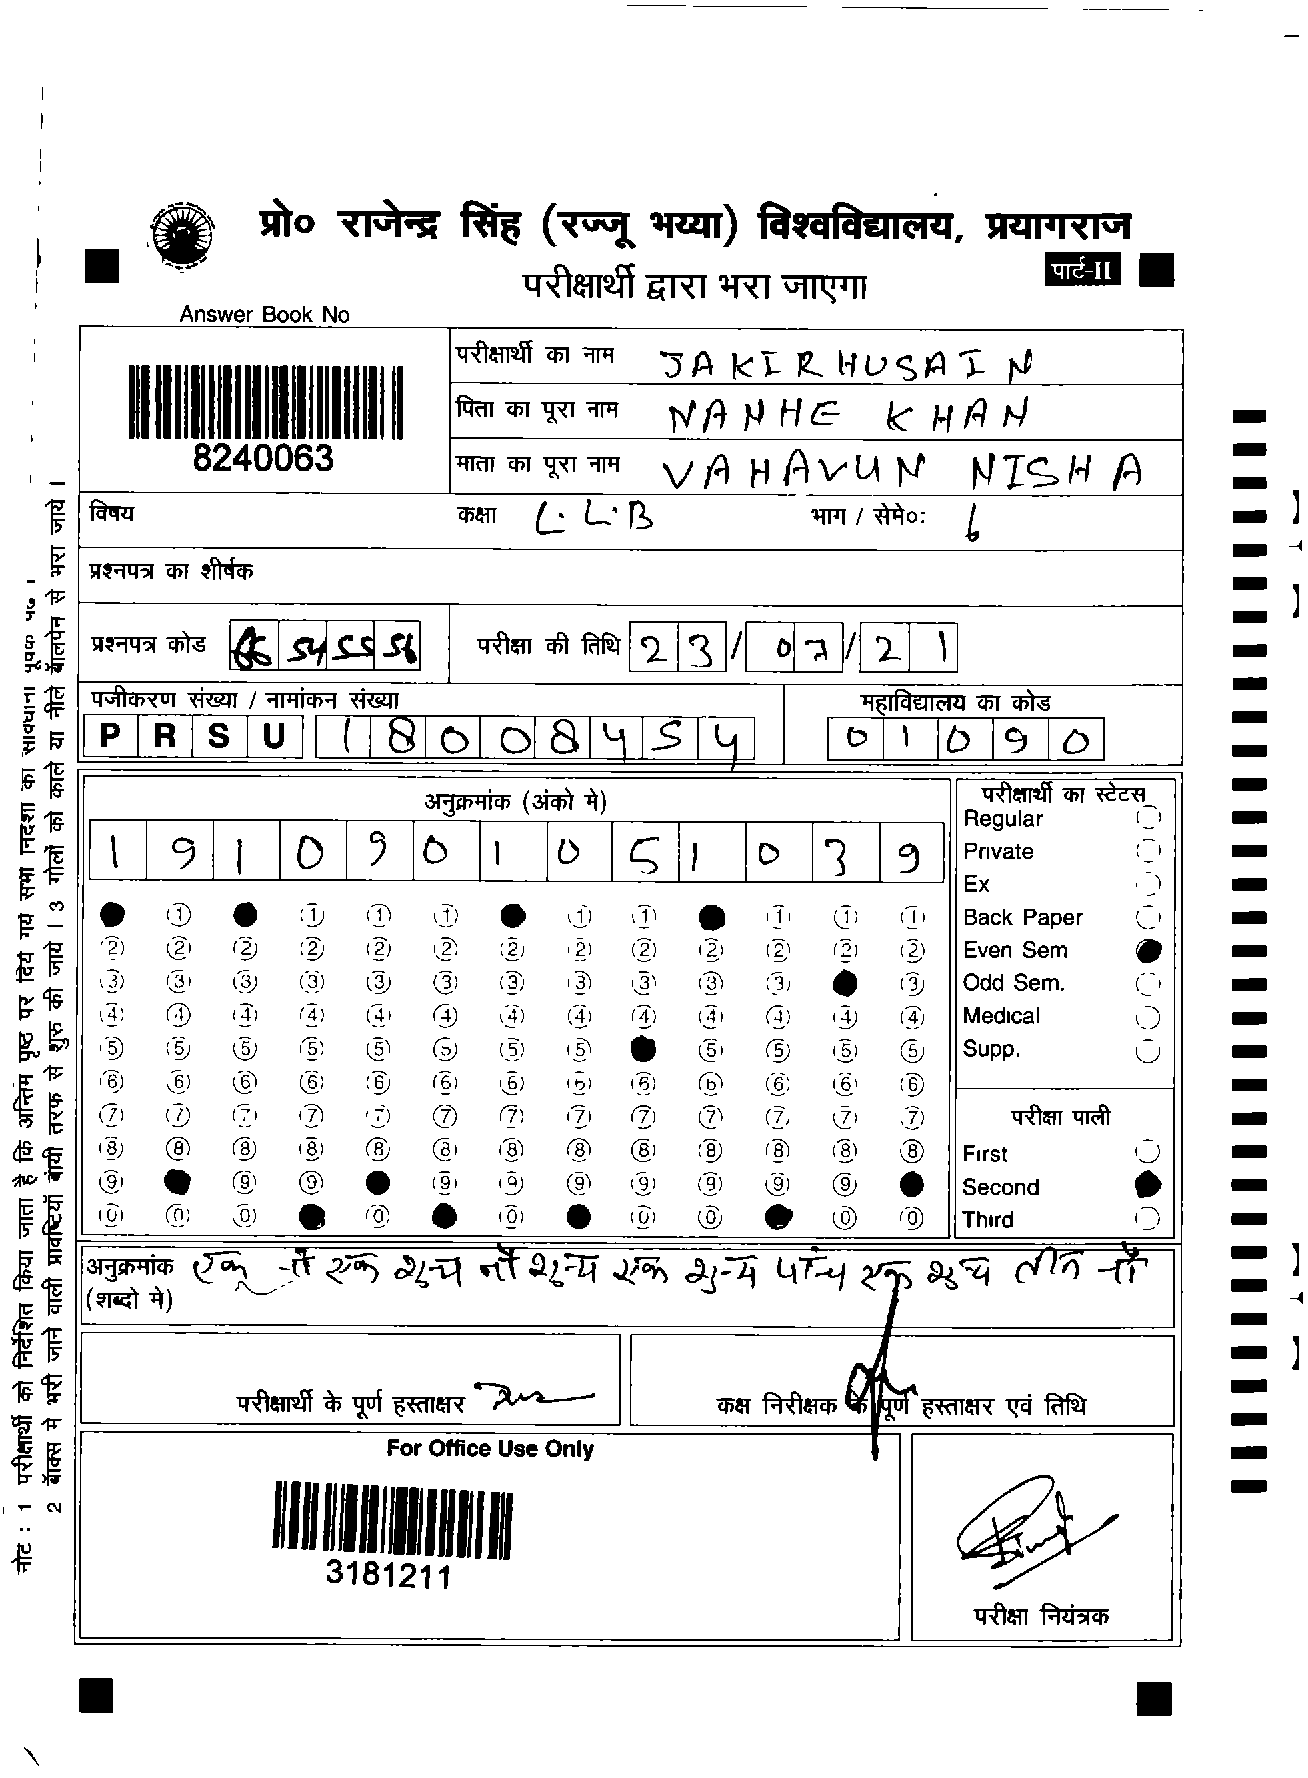 प्रो० राजेन्द्र सिंह (रज्जू भय्या) विश्वविद्यालय, प्रयागराज
पार्ट-II
परीक्षार्थी द्वारा भरा जाएगा
Answer Book No
8240063
परीक्षार्थी का नाम JAKIR HUSAIN
पिता का पूरा नाम NANHE KHAN
माता का पूरा नाम VAHAVUN NISHA
विषय कक्षा L.L.B भाग / सेमे०: 6
प्रश्नपत्र का शीर्षक
प्रश्नपत्र कोड 54 55 56 परीक्षा की तिथि 23/07/21
पजीकरण संख्या / नामांकन संख्या महाविद्यालय का कोड
P R S U 1 8 0 0 8 4 5 4 0 1 0 9 0
अनुक्रमांक (अंको मे)
1 9 1 0 9 0 1 0 5 1 0 3 9
परीक्षार्थी का स्टेटस
Regular
Private
Ex
Back Paper
Even Sem
Odd Sem.
Medical
Supp.
परीक्षा पाली
First
Second
Third
अनुक्रमांक एक नौ एक शुन्य नौ शुन्य एक शुन्य पाँच एक शुन्य तीन नौ
(शब्दो मे)
परीक्षार्थी के पूर्ण हस्ताक्षर
कक्ष निरीक्षक के पूर्ण हस्ताक्षर एवं तिथि
For Office Use Only
3181211
परीक्षा नियंत्रक
नोट : 1 परीक्षार्थी को निर्देशित किया जाता है कि अन्तिम पृष्ठ पर दिये गये सभी निर्देशों का सावधानी पूर्वक
2 बॉक्स मे भरी जाने वाली प्रविष्टियाँ बांयी तरफ से शुरू की जाये । 3 गोलों को काले या नीले बालपेन से भरा जाये ।